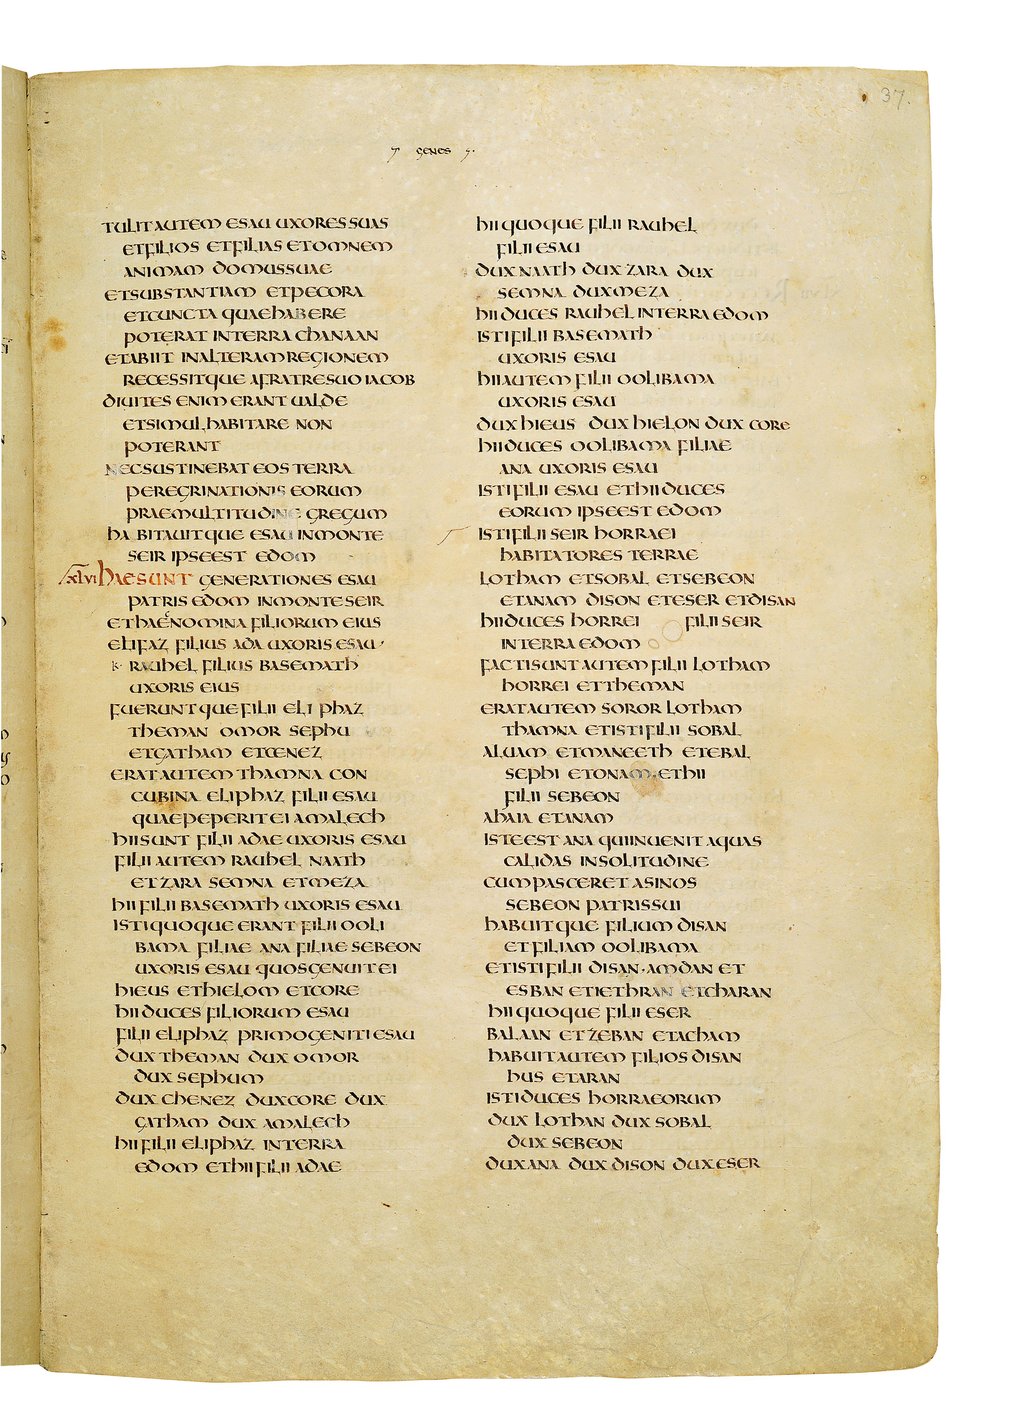 37.
GENES
TULIT AUTEM ESAU UXORES SUAS
ET FILIOS ET FILIAS ET OMNEM
ANIMAM DOMUS SUAE
ET SUBSTANTIAM ET PECORA
ET CUNCTA QUAE HABERE
POTERAT IN TERRA CHANAAN
ET ABIIT IN ALTERAM REGIONEM
RECESSITQUE A FRATRE SUO IACOB
DIUITES ENIM ERANT UALDE
ET SIMUL HABITARE NON
POTERANT
NEC SUSTINEBAT EOS TERRA
PEREGRINATIONIS EORUM
PRAE MULTITUDINE GREGUM
HABITAUITQUE ESAU IN MONTE
SEIR IPSE EST EDOM
XLVI HAE SUNT GENERATIONES ESAU
PATRIS EDOM IN MONTE SEIR
ET HAEC NOMINA FILIORUM EIUS
ELIFAZ FILIUS ADA UXORIS ESAU
RAUHEL FILIUS BASEMATH
UXORIS EIUS
FUERUNTQUE FILII ELIPHAZ
THEMAN OMOR SEPHU
ET GATHAM ET CENEZ
ERAT AUTEM THAMNA CON
CUBINA ELIPHAZ FILII ESAU
QUAE PEPERIT EI AMALECH
HII SUNT FILII ADAE UXORIS ESAU
FILII AUTEM RAUHEL NAATH
ET ZARA SEMNA ET MEZA
HII FILII BASEMATH UXORIS ESAU
ISTI QUOQUE ERANT FILII OOLI
BAMA FILIAE ANA FILIAE SEBEON
UXORIS ESAU QUOS GENUIT EI
HIEUS ET HIELOM ET CORE
HII DUCES FILIORUM ESAU
FILII ELIPHAZ PRIMOGENITI ESAU
DUX THEMAN DUX OMOR
DUX SEPHUM
DUX CHENEZ DUX CORE DUX
GATHAM DUX AMALECH
HII FILII ELIPHAZ IN TERRA
EDOM ET HII FILII ADAE
HII QUOQUE FILII RAUHEL
FILII ESAU
DUX NAATH DUX ZARA DUX
SEMNA DUX MEZA
HII DUCES RAUHEL IN TERRA EDOM
ISTI FILII BASEMATH
UXORIS ESAU
HII AUTEM FILII OOLIBAMA
UXORIS ESAU
DUX HIEUS DUX HIELON DUX CORE
HII DUCES OOLIBAMA FILIAE
ANA UXORIS ESAU
ISTI FILII ESAU ET HII DUCES
EORUM IPSE EST EDOM
ISTI FILII SEIR HORRAEI
HABITATORES TERRAE
LOTHAM ET SOBAL ET SEBEON
ET ANAM DISON ET ESER ET DISAN
HII DUCES HORREI FILII SEIR
IN TERRA EDOM
FACTI SUNT AUTEM FILII LOTHAM
HORREI ET THEMAN
ERAT AUTEM SOROR LOTHAM
THAMNA ET ISTI FILII SOBAL
ALUAM ET MANEETH ET EBAL
SEPHI ET ONAM ET HII
FILII SEBEON
AHAIA ET ANAM
ISTE EST ANA QUI INUENIT AQUAS
CALIDAS IN SOLITUDINE
CUM PASCERET ASINOS
SEBEON PATRIS SUI
HABUITQUE FILIUM DISAN
ET FILIAM OOLIBAMA
ET ISTI FILII DISAN · AMDAN ET
ESBAN ET IETHRAN ET CHARAN
HII QUOQUE FILII ESER
BALAAN ET ZEBAN ET ACHAM
HABUIT AUTEM FILIOS DISAN
HUS ET ARAN
ISTI DUCES HORRAEORUM
DUX LOTHAN DUX SOBAL
DUX SEBEON
DUX ANA DUX DISON DUX ESER